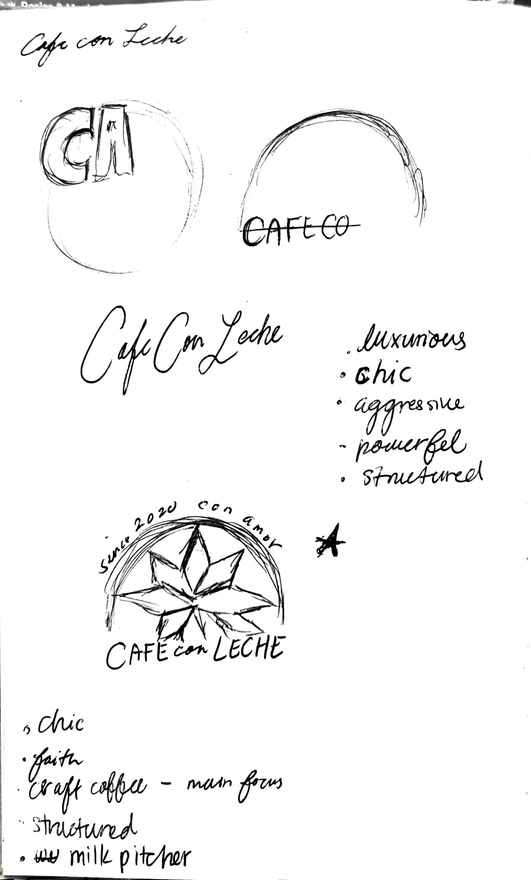 Cafe con Leche
CA
CAFE CO
Cafe Con Leche
. luxurious
• chic
• aggressive
- powerful
• structured
since 2020 con amor
CAFE con LECHE
• chic
• faith
• craft coffee – main focus
• structured
• milk pitcher